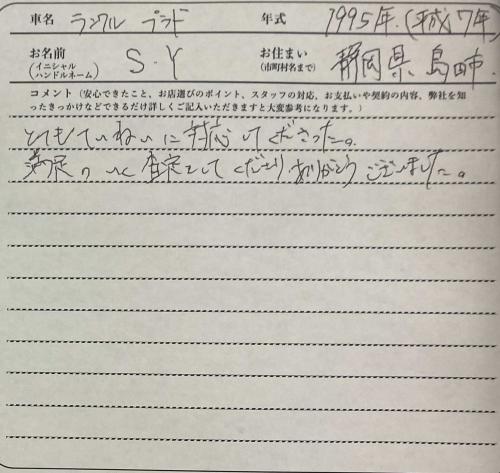 車名 ランクル プラド 年式 1995年.(平成7年)
お名前 (イニシャル ハンドルネーム) S.Y お住まい (市町村名まで) 静岡県島田市
コメント(安心できたこと、お店選びのポイント、スタッフの対応、お支払いや契約の内容、弊社を知
ったきっかけなどできるだけ詳しくご記入いただきますと大変参考になります。)
とてもていねいに対応してくださった。
満足のいく査定をしてくださりありがとうございました。